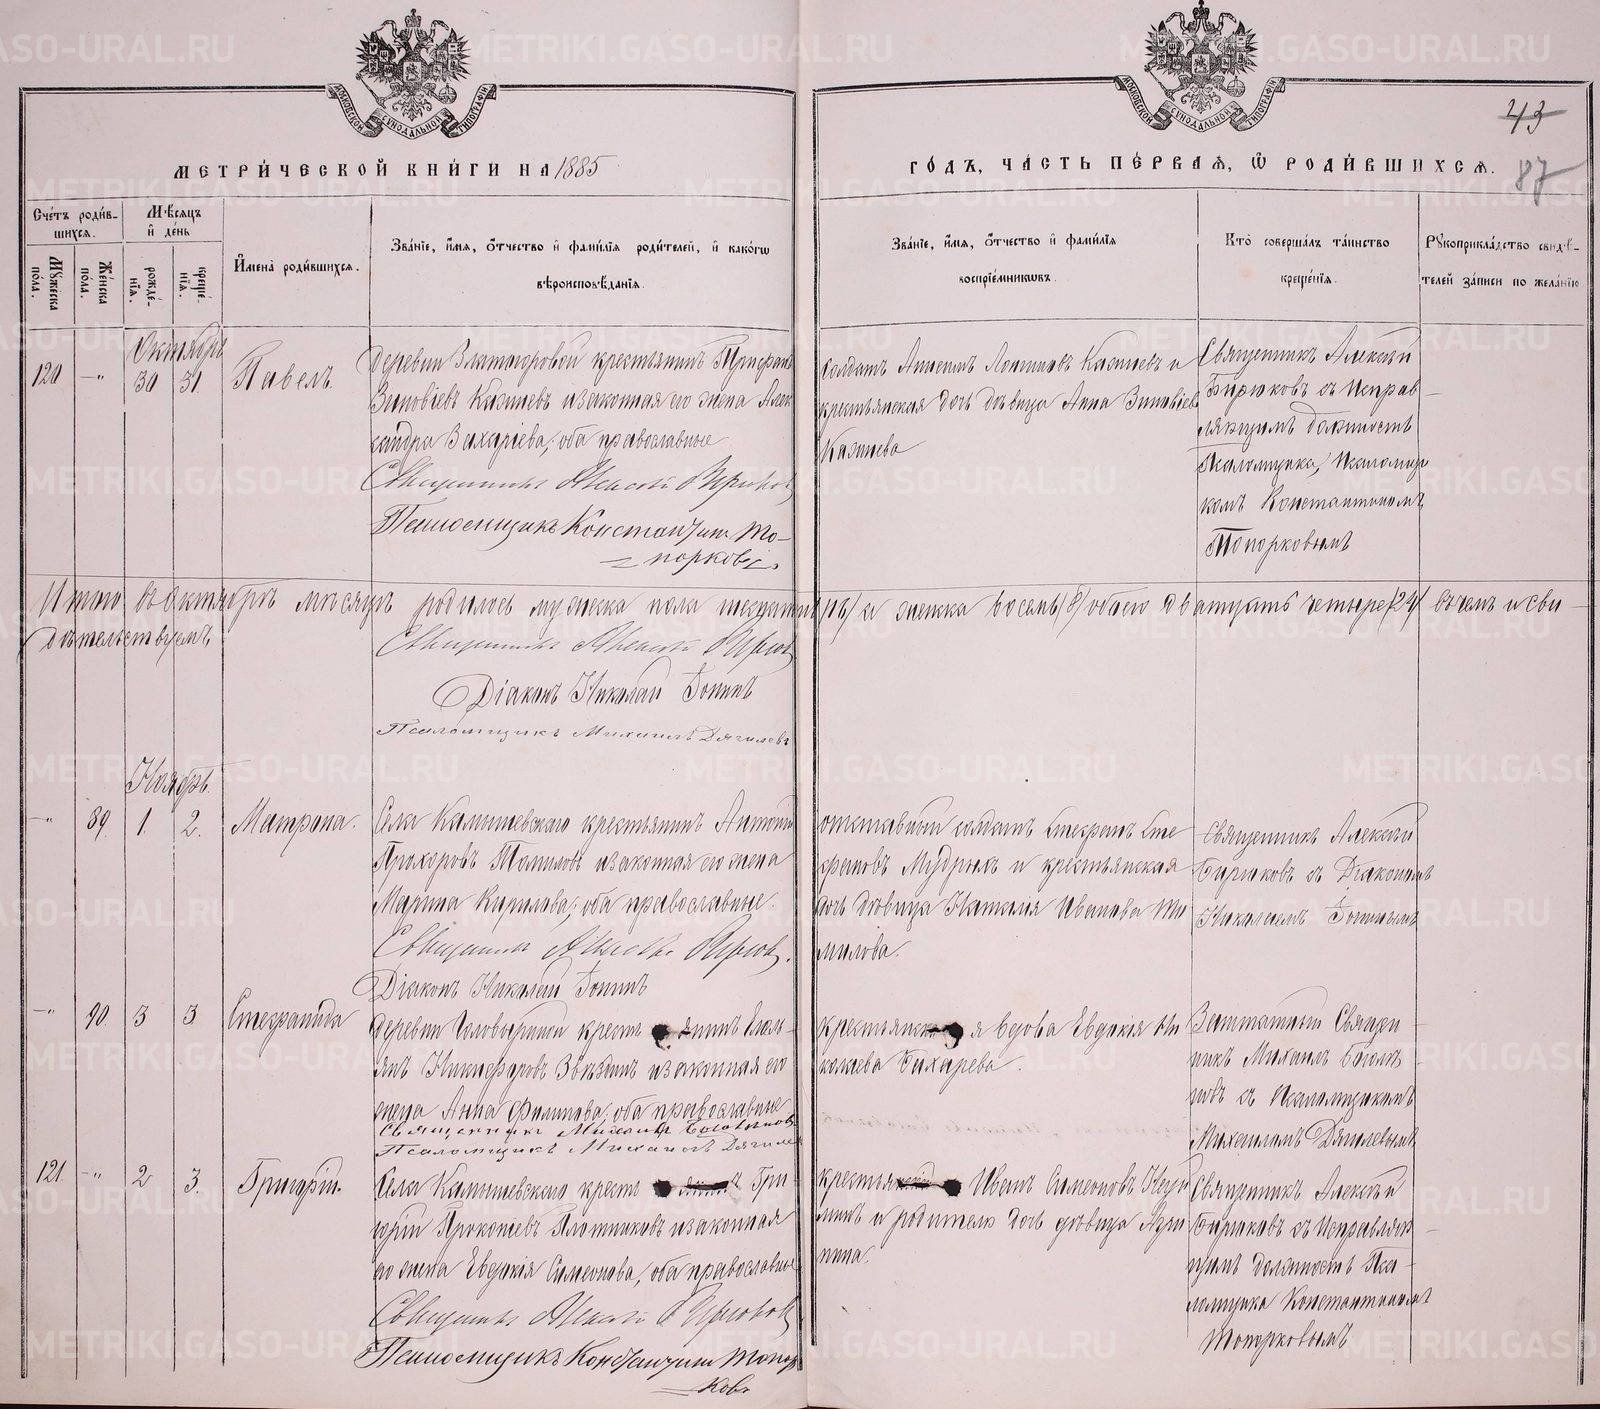 МОСКОВСКОЙ СѴНОДАЛЬНОЙ ТИПОГРАФІИ
МОСКОВСКОЙ СѴНОДАЛЬНОЙ ТИПОГРАФІИ
43
87
МЕТРИ́ЧЕСКОЙ КНИ́ГИ НА 1885
ГО́ДЪ, ЧА́СТЬ ПЕ́РВАѦ, Ѡ РОДИ́ВШИХСѦ.
Сче́тъ роди́вшихсѧ.
Мꙋ́жеска по́ла.
Же́нска по́ла.
Мѣ́сѧцъ и҆ де́нь
рожде́нїѧ.
креще́нїѧ.
И҆мена̀ роди́вшихсѧ.
Зва́нїе, и҆́мѧ, ѻ҆́тчество и҆ фами́лїѧ роди́телей, и҆ како́гѡ вѣроисповѣ́данїѧ.
Зва́нїе, и҆́мѧ, ѻ҆́тчество и҆ фами́лїѧ воспрїе́мникѡвъ.
Кто̀ соверша́лъ та́инство креще́нїѧ.
Рꙋкоприкла́дство свидѣ́телей за́писи по жела́нїю
Октябрь
120 -"- 30 31. Павелъ.
Деревни Златогоровой крестьянинъ Трифонъ
Зиновіевъ Казанцевъ и законная его жена Алек
сандра Захаріева, оба православные
Священникъ Алексѣй Бирюковъ
Псаломщикъ Константинъ То-
порковъ.
крестьянская дочь дѣвица Анна Зиновіев
Священникъ Алексѣй
Бирюковъ съ Исправ-
ляющимъ должность
Псаломщика, Псаломщи
комъ Константиномъ
Топорковымъ
Итого въ октябрѣ мѣсяцѣ родилось мужеска пола шестнадцать /16/ и женска восемь /8/ обоего двадцать четыре /24/ въ чемъ и сви-
дѣтельствуемъ,
Священникъ Алексѣй Бирюков
Діаконъ Николай Топинъ
Псаломщикъ Михаилъ Дягилевъ
Ноябрь.
-"- 89 1. 2. Матрона.
Села Камышевскаго крестьянинъ Антоній
Прохоровъ Томиловъ и законная его жена
Марина Кирилова, оба православные.
Священникъ Алексѣй Бирюков.
Діаконъ Николай Топинъ
отставный солдатъ Стефанъ Сте
фановъ Мудрыхъ и крестьянская
дочь дѣвица Наталія Иванова То
милова.
Священникъ Алексѣй
Бирюковъ съ Діакономъ
Николаемъ Топинымъ
-"- 90 3 3 Стефанида
Деревни Головыриной кресть янинъ Емель-
янъ Никифоровъ Звѣздинъ и законная его
жена Анна Филипова, оба православные
Священникъ Михаилъ Боголѣповъ
Псаломщикъ Михаилъ Дягилев
крестьянск я вдова Евдокія Ни
колаева Бухарева.
Заштатный Священ-
никъ Михаилъ Боголѣ-
повъ съ Псаломщикомъ
Михаиломъ Дягилевымъ
121 -"- 2 3. Григорій.
Села Камышевскаго кресть ъ Гри-
горій Прокопіевъ Плотниковъ и законная
его жена Евдокія Симеонова, оба православные
Священникъ Алексѣй Бирюковъ
Псаломщикъ Константинъ Топор
ковъ
и родителю дочь дѣвица
Священникъ Алексѣй
Бирюковъ съ Исправляю-
щимъ должность Пса-
ломщика Константиномъ
Топорковымъ
METRIKI.GASO-URAL.RU